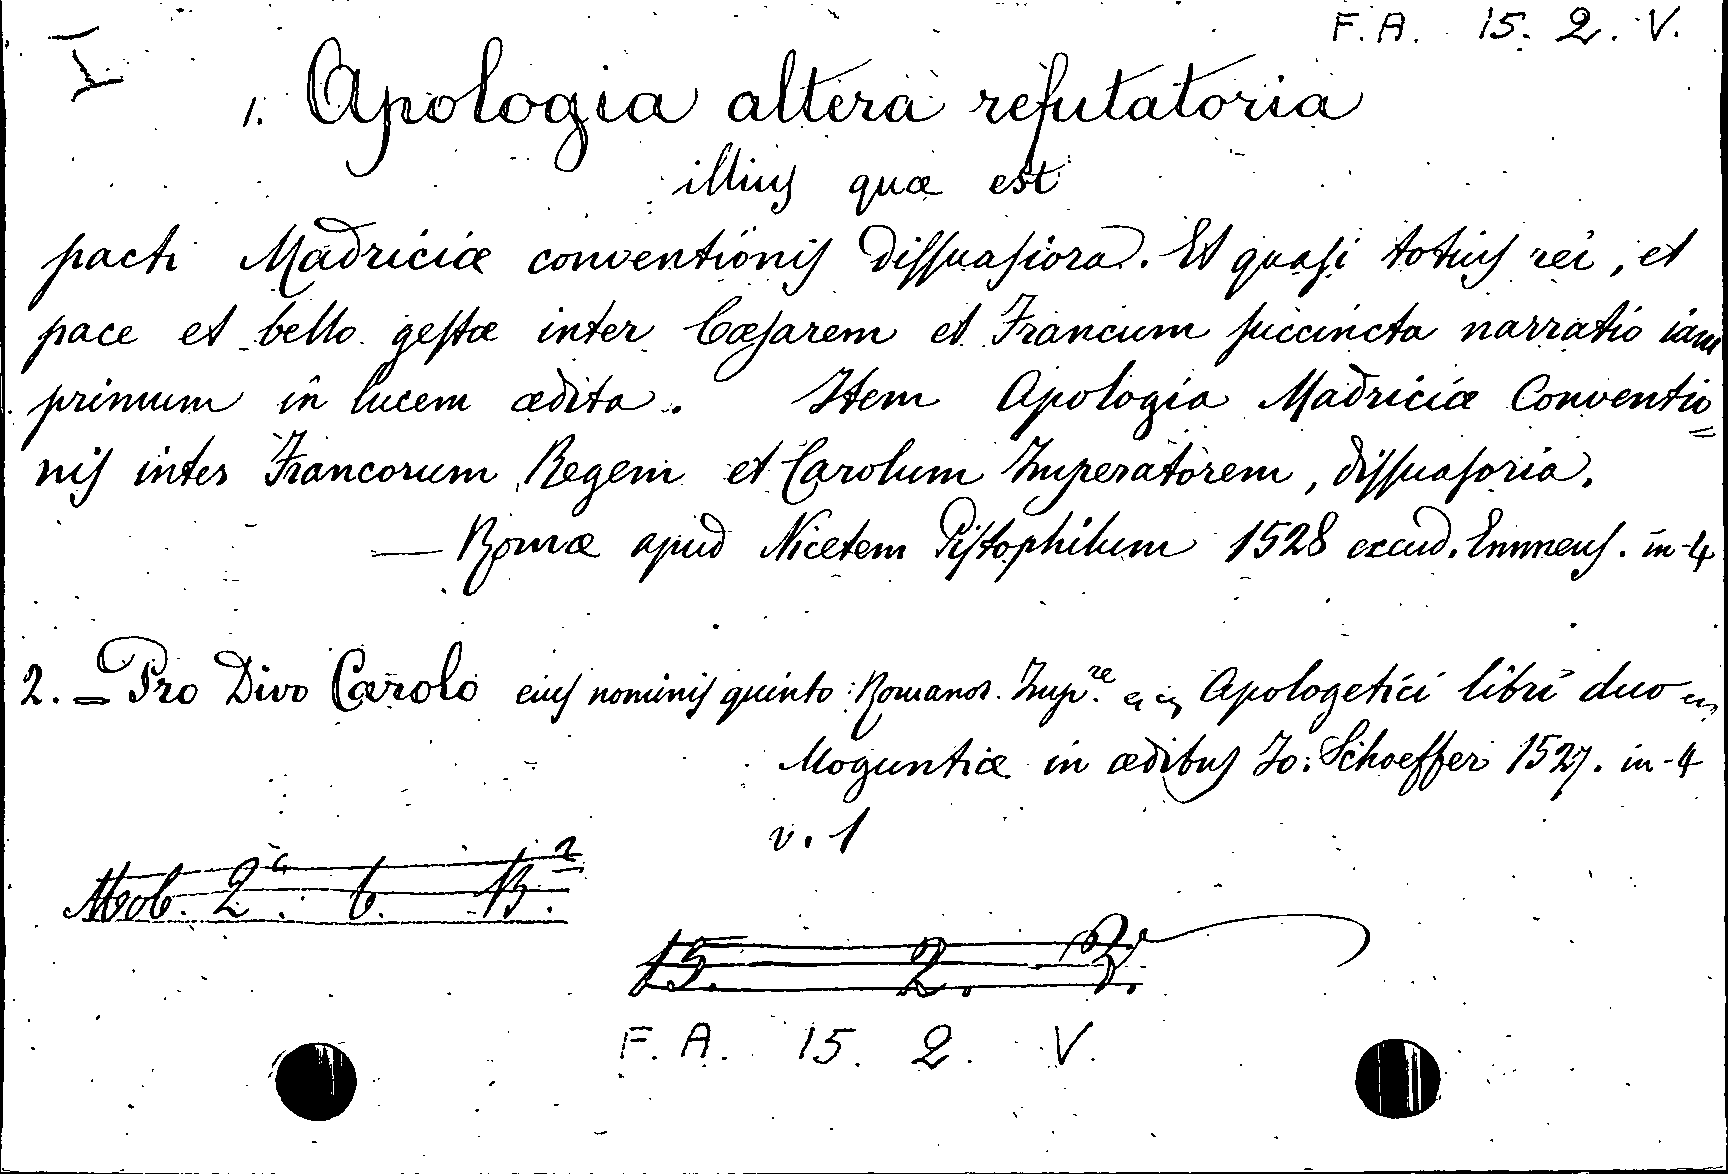 F. A. 15. 2. V.
I
1. Apologia altera refutatoria
illius quæ est
pacti Madriciæ conventionis dissuasiora. Et quasi totius rei, et
pace et bello gestæ inter Cæsarem et Francum succincta narratio iam
primum in lucem ædita. Item Apologia Madriciæ Conventio=
nis inter Francorum Regem et Carolum Imperatorem, dissuasoria.
— Romæ apud Nicetem Pistophilum 1528 excud. Emmeus. in-4
2. = Pro Divo Carolo eius nominis quinto Romanor. Imp.re Apologetici libri duo
Moguntiæ in ædibus Jo: Schoeffer 1527. in-4
v. 1
Mob. 2a. 6. B.
15. 2. V.
F. A. 15. 2. V.